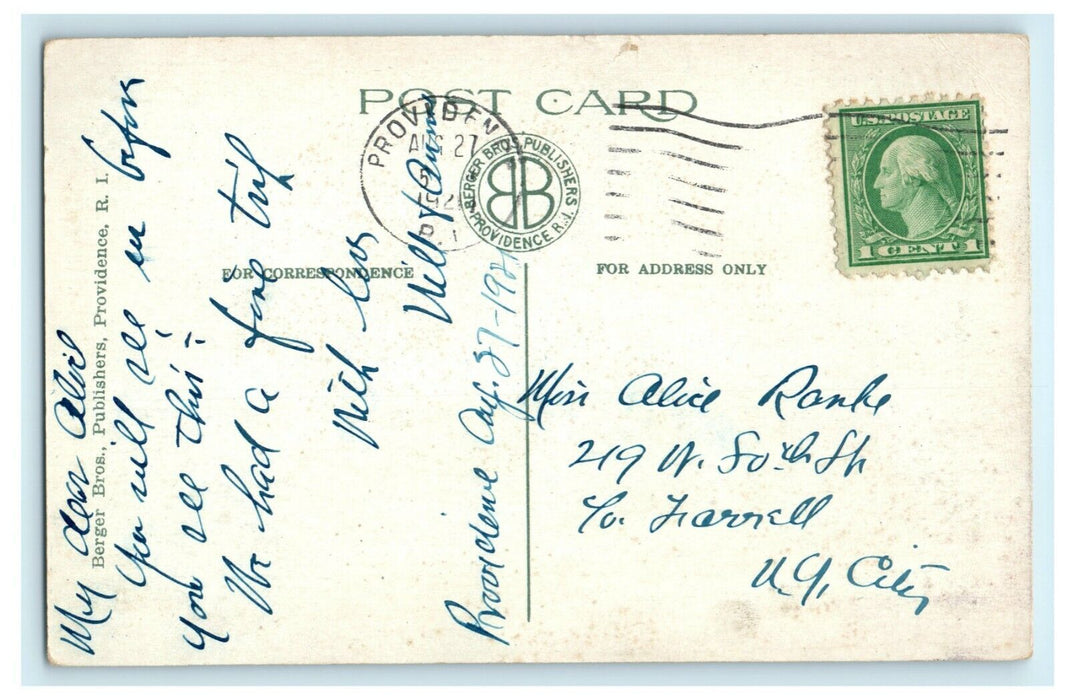 POST CARD
PROVIDEN
AUG 27
BERGER BROS. PUBLISHERS
PROVIDENCE R.I.
BB
U.S. POSTAGE
1 CENT 1
FOR CORRESPONDENCE
FOR ADDRESS ONLY
Berger Bros., Publishers, Providence, R. I.
My dear Alice
You will see us before
you see this
We had a fine trip
With love
Will &
Providence Aug. 27-192
Miss Alice Ranke
219 W. 80th St
c/o. Farrell
N.Y. City